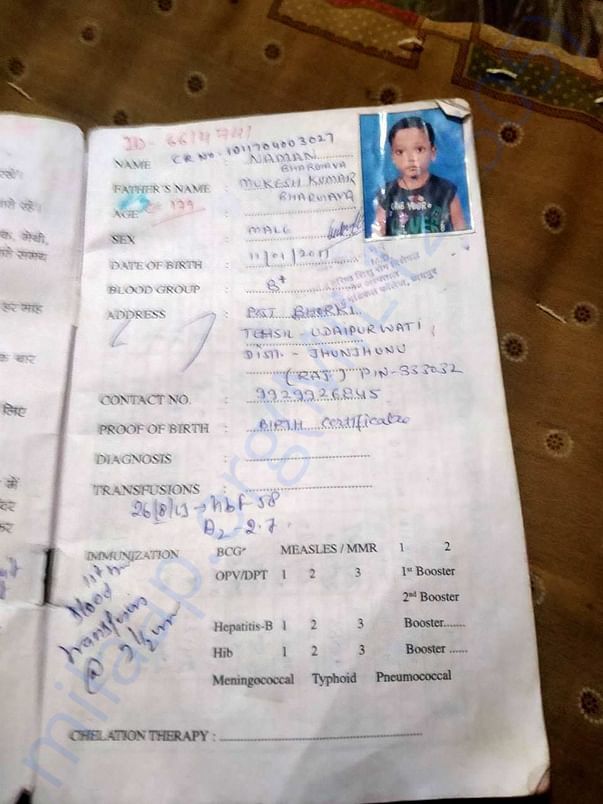 ID-
CR NO. 1011704003027
NAME : NAMAN BHARGAVA
FATHER'S NAME : MUKESH KUMAR BHARGAVA
AGE : 179
SEX : MALE
DATE OF BIRTH : 11/01/2011
BLOOD GROUP : B+
ADDRESS : POST BHORKI
TEHSIL UDAIPURWATI
DISTT. - JHUNJHUNU
(RAJ) PIN-333032
CONTACT NO. : 9929926845
PROOF OF BIRTH : BIRTH certificate
DIAGNOSIS :
TRANSFUSIONS :
26/8/13 → HbF-58
A2-2.7
IMMUNIZATION BCG MEASLES / MMR 1 2
OPV/DPT 1 2 3 1st Booster
2nd Booster
Hepatitis-B 1 2 3 Booster.......
Hib 1 2 3 Booster ......
Meningococcal Typhoid Pneumococcal
Blood
transfusion
@
CHELATION THERAPY :
milaap.org